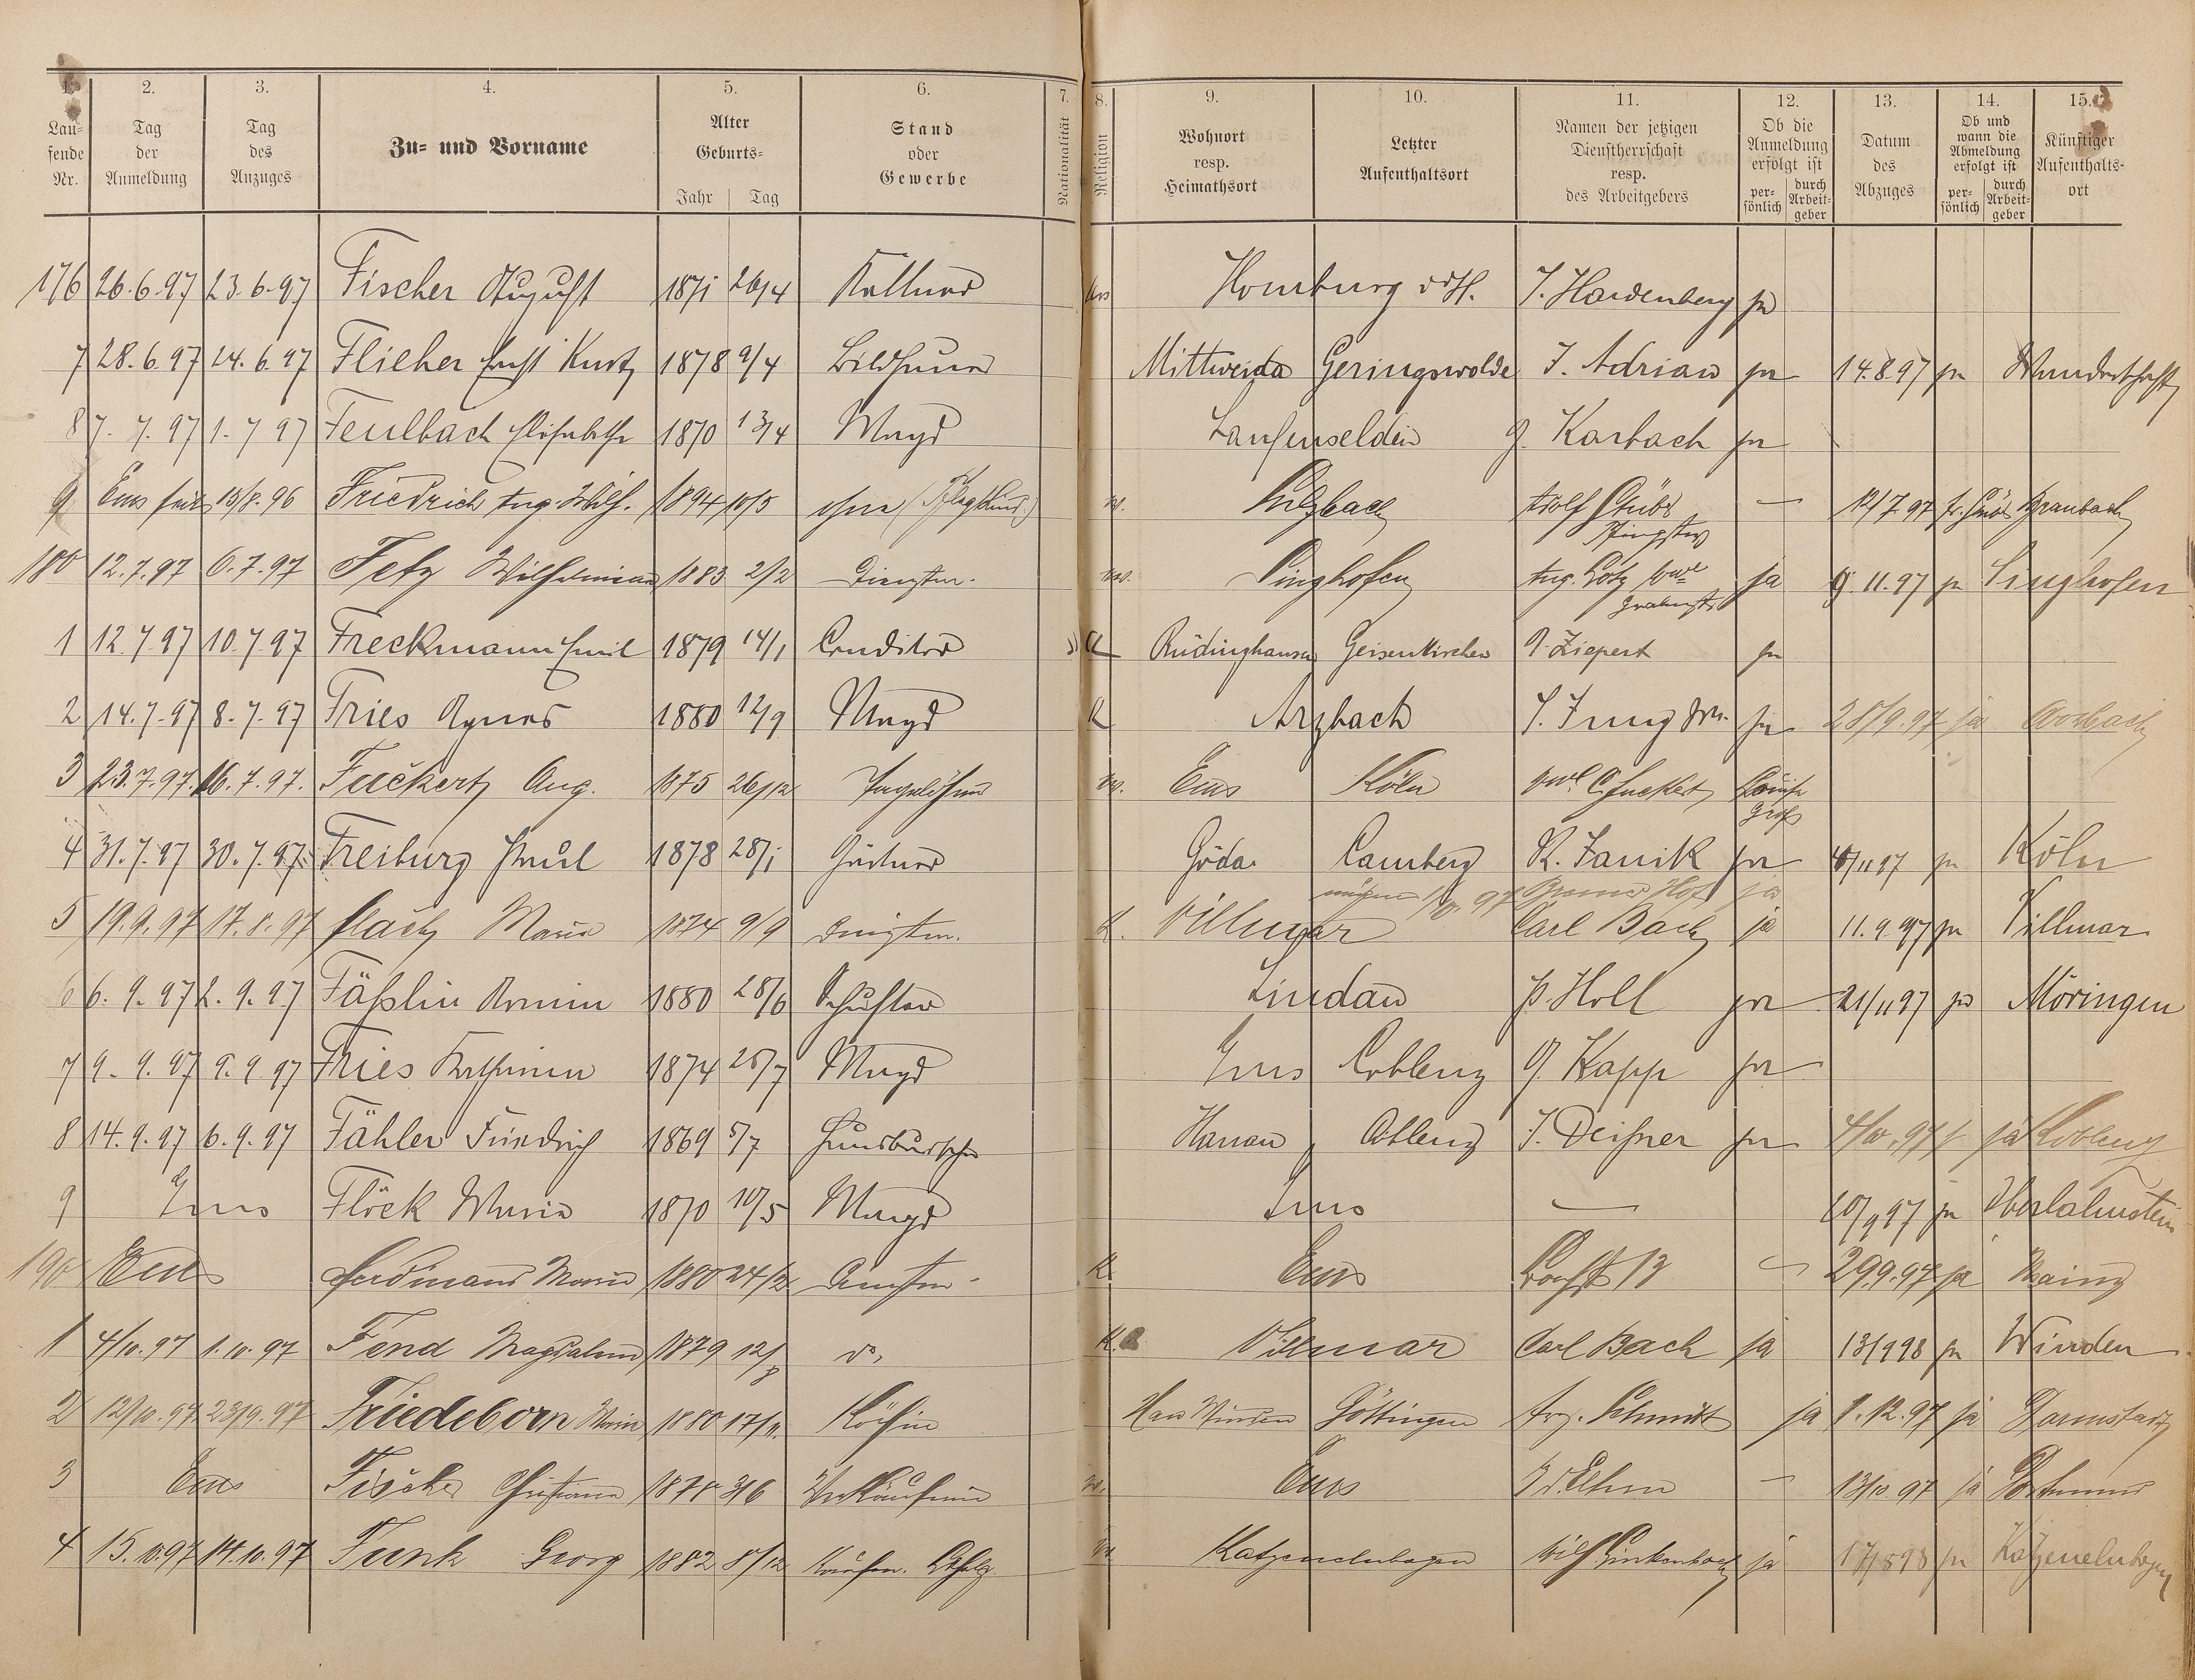 1. 2. 3. 4. 5. 6. 7. 8. 9. 10. 11. 12. 13. 14. 15.
Lau-
fende
Nr.
Tag
der
Anmeldung
Tag
des
Anzuges
Zu- und Vorname
Alter
Geburts-
Jahr Tag
Stand
oder
Gewerbe
Nationalität
Religion
Wohnort
resp.
Heimathsort
Letzter
Aufenthaltsort
Namen der jetzigen
Dienstherrschaft
resp.
des Arbeitgebers
Ob die
Anmeldung
erfolgt ist
per-
sönlich
durch
Arbeit-
geber
Datum
des
Abzuges
Ob und
wann die
Abmeldung
erfolgt ist
per-
sönlich
durch
Arbeit-
geber
Künftiger
Aufenthalts-
ort
176 26.6.97 23.6.97 Fischer August 1871 26/4 Kellner Homburg v.d.H. J. Hardenberg ja
7 28.6.97 24.6.97 Flieher Ernst Kurt 1878 9/4 Bildhauer Mittweida Geringswolde J. Adrian ja 14.8.97 ja Wanderschaft
8 7.7.97 1.7.97 Feulbach Elisabeth 1870 13/4 Magd Laufenselden G. Karbach ja
9 Ems seit 15/8.96 Friedrich Aug. Wilh. 1894 10/5 ohne (Pflegkind.) Sulzbach Adolf Stübs — 12/7.97 Braubach
Pfingstw
180 12.7.97 6.7.97 Fetz Wilhelmine 1883 2/2 Dienstm. Singhofen Aug. Götz Wwe ja 9.11.97 ja Singhofen
Grabenstr
1 12.7.97 10.7.97 Freckmann Emil 1879 14/1 Conditor Rüdinghausen Geisenkirchen A. Ziepert ja
2 14.7.97 8.7.97 Fries Agnes 1880 12/9 Magd K Arzbach J. Jung ja 28/9.97 ja Arzbach
3 23.7.97. 16.7.97. Fuckert Aug. 1875 26/12 Tagelöhner Ems Köln Wwe C. Fuckert
4 31.7.97 30.7.97 Freiburg Paul 1878 28/1 Gärtner Göda Camberg R. Janik ja 11 97 ja Köln
97 Bremer Hof ja
5 19.9.97 17.8.97 Flach Maria 1874 9/9 Dienstm. K. Villmar Carl Bach ja 11.9.97 ja Villmar
6 6.9.97 2.9.97 Fäßlin Armin 1880 28/6 Schuster Lindau P. Holl ja 21/11 97 ja Möringen
7 9.9.97 9.9.97 Fries Katharina 1874 25/7 Magd Ems Coblenz G. Kapp ja
8 14.9.97 6.9.97 Fähler Friedrich 1869 5/7 Hausbursche Hanau Coblenz J. Deißner ja 4/10.97 ja Coblenz
9 Ems Flöck Maria 1870 10/5 Magd Ems — 20/9 97 ja Oberlahnstein
190 Ems Ferdinand Maria 1880 24/12 Dienstm. K. Ems 29.9.97 ja Mainz
1 4/10.97 1.10.97 Fend Magdalena 1879 12/8 do. K. Villmar Carl Bach ja 13/9 98 ja Winden
2 12/10.97 23/9.97 Friedeborn Maria 1880 17/11. Köchin Han Münden Göttingen Aug. Schmidt ja 1.12.97 ja Darmstadt
3 Ems Fischer Christiane 1878 3/6 Verkäuferin Ems — 13/10 97 ja Dortmund
4 15.10.97 14.10.97 Funk Georg 1882 8/12 Kaufm. Lehrlg Katzenelnbogen Wilh Linkenbach ja 17/5 98 ja Katzenelnbogen